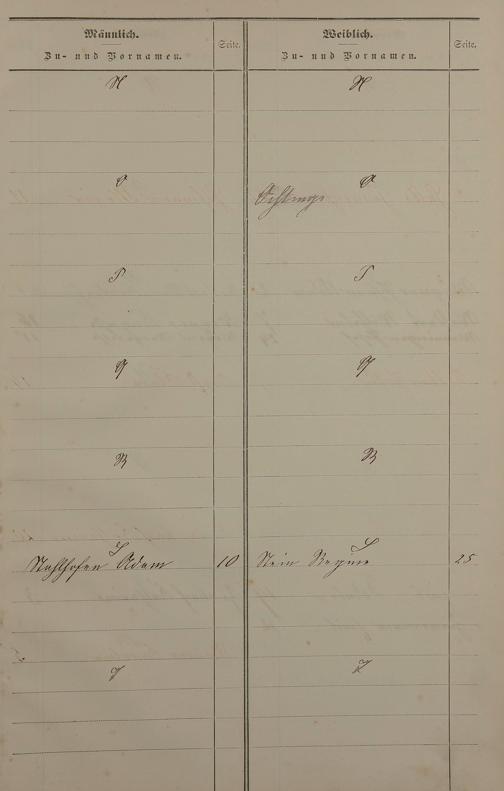 Männlich.
Zu- und Vornamen.
Seite.
N
O
P
Q
R
S
Stahlhofen Adam 10
T
Weiblich.
Zu- und Vornamen.
Seite.
N
O
P
Q
R
S
Stein Regine 25
T